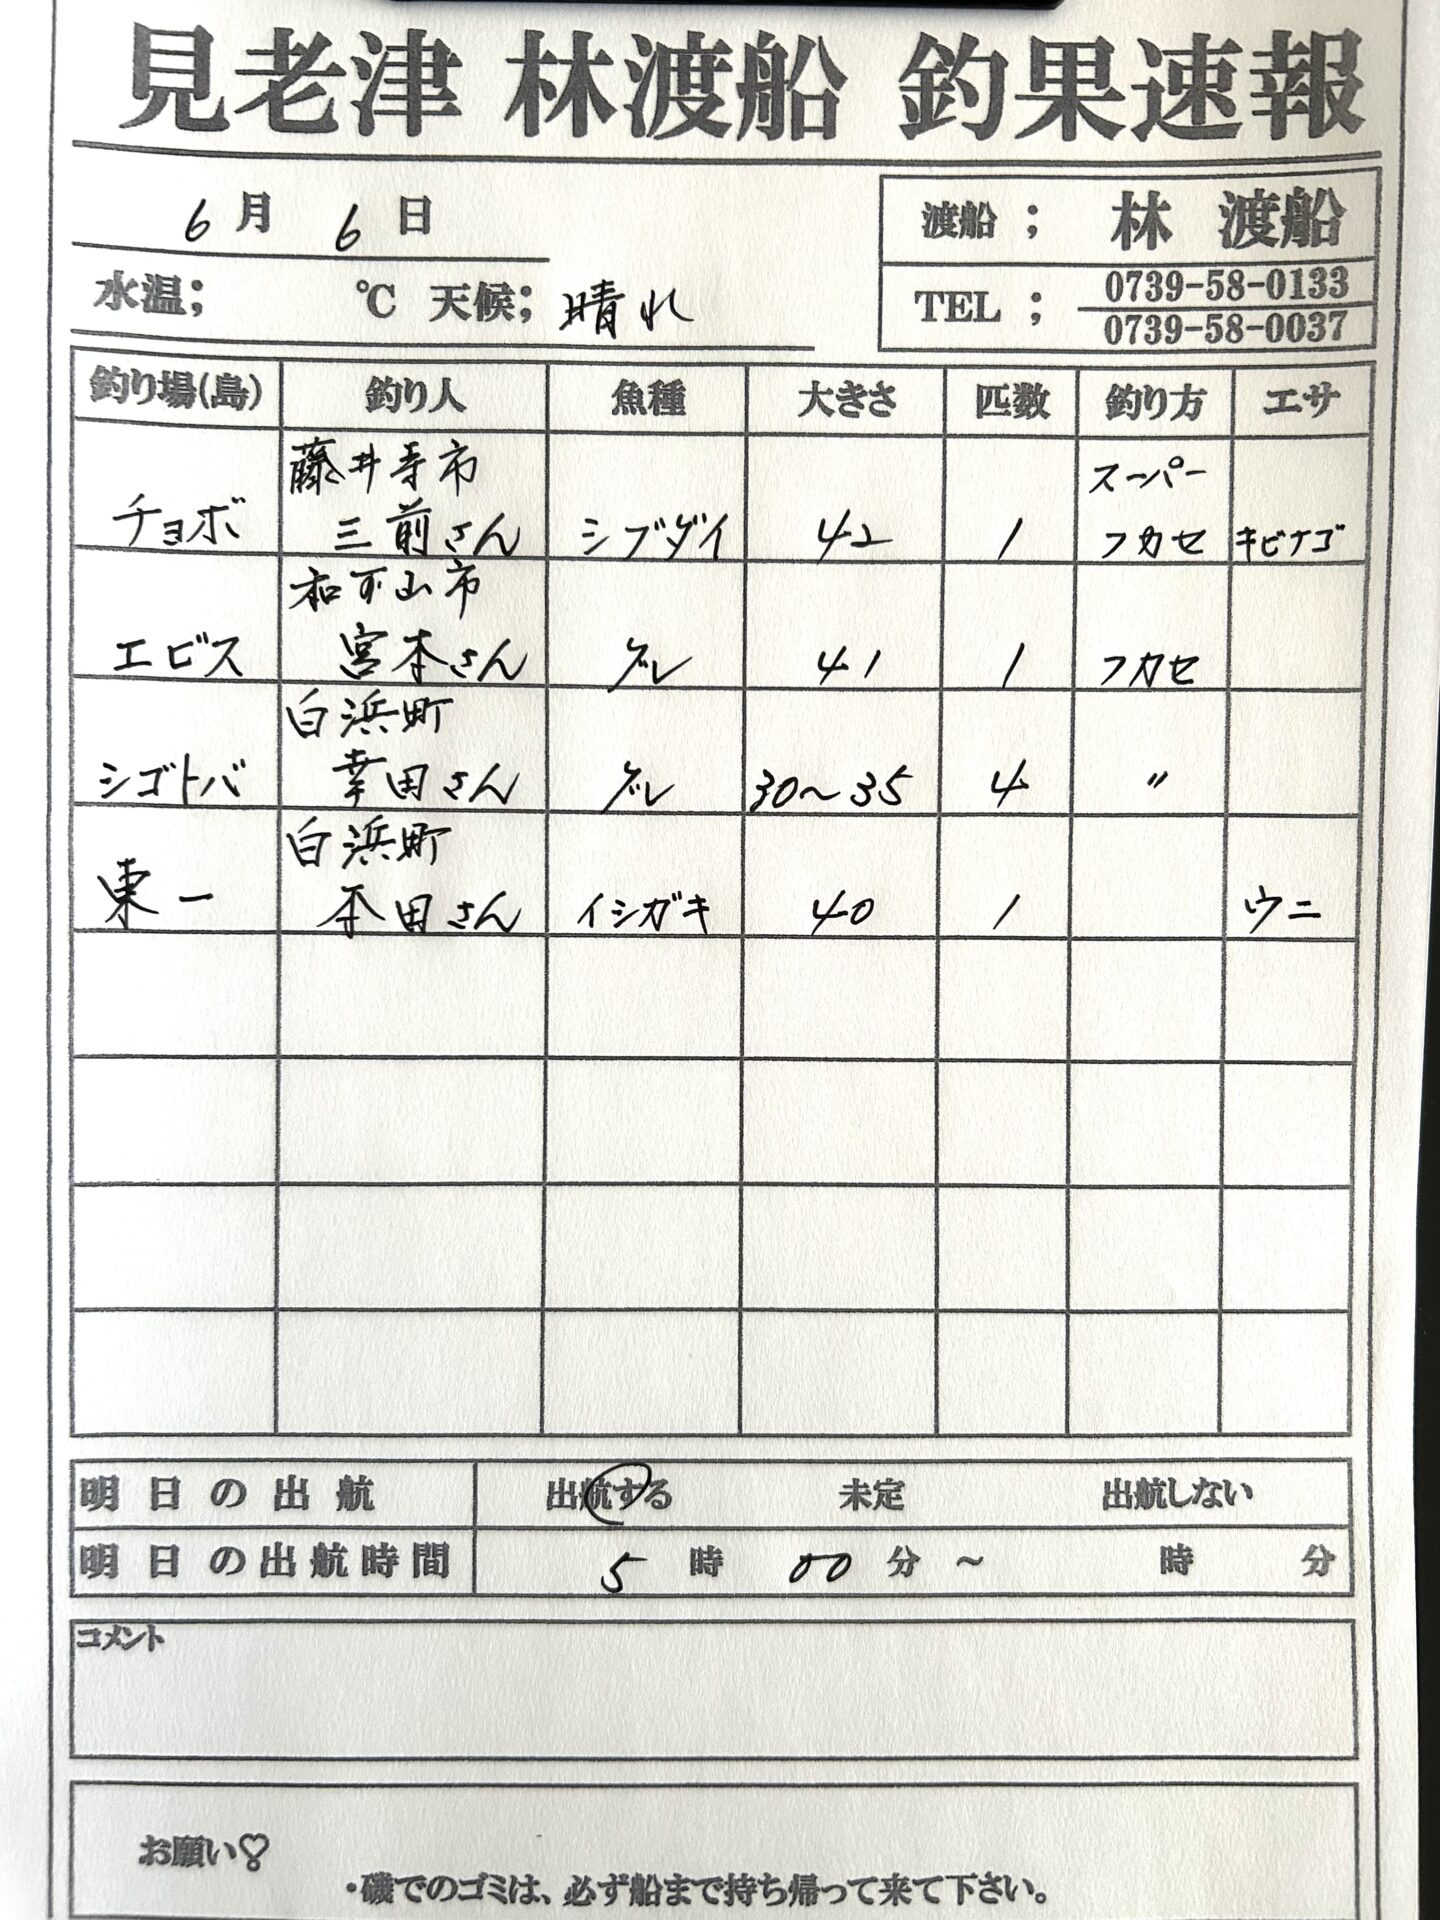 見老津 林渡船 釣果速報
6月 6日
渡船 ; 林 渡船
水温; ℃ 天候; 晴れ
TEL ; 0739-58-0133
0739-58-0037
釣り場(島) 釣り人 魚種 大きさ 匹数 釣り方 エサ
藤井寺市 スーパー
チョボ 三前さん シブダイ 42 1 フカセ キビナゴ
和歌山市
エビス 宮本さん グレ 41 1 フカセ
白浜町
シゴトバ 幸田さん グレ 30～35 4 〃
白浜町
東一 本田さん イシガキ 40 1 ウニ
明日の出航 出航する 未定 出航しない
明日の出航時間 5時 00分 ～ 時 分
コメント
お願い♡
・磯でのゴミは、必ず船まで持ち帰って来て下さい。